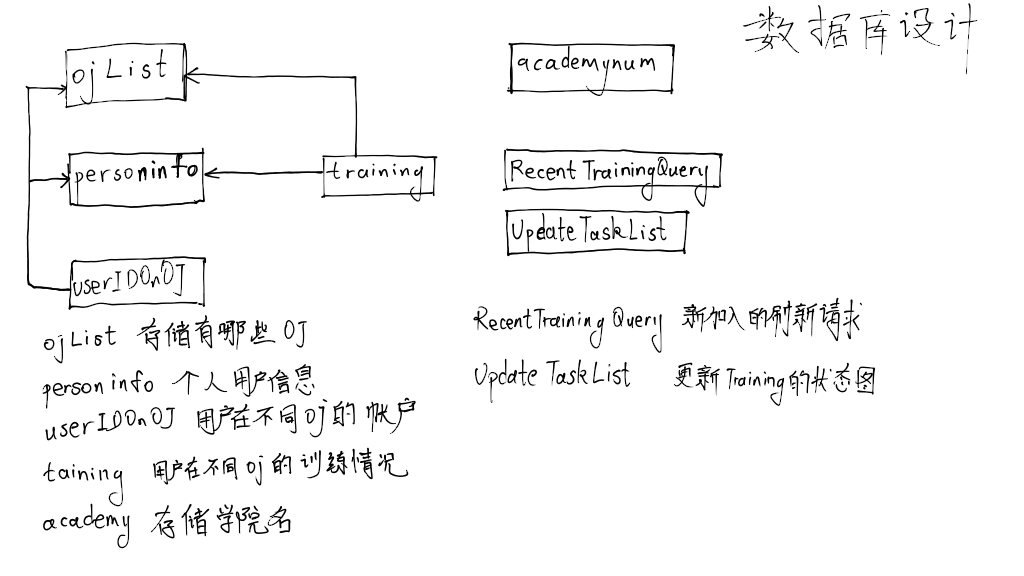 数据库设计
ojList
academynum
personinfo
training
RecentTrainingQuery
UpdateTaskList
userIDOnOJ
ojList 存储有哪些OJ
personinfo 个人用户信息
userIDOnOJ 用户在不同oj的帐户
taining 用户在不同oj的训练情况
academy 存储学院名
RecentTrainingQuery 新加入的刷新请求
Update TaskList 更新Training的状态图